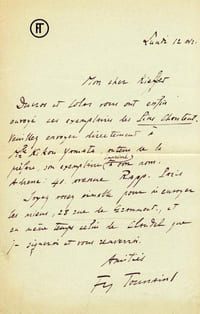 FT
Lundi 12 oct.
Mon cher Kieffer
Ducros et Colas vous ont enfin
envoyé ses exemplaires des Pins Chantent.
Veuillez envoyer directement à
Mlle Kikou Yamata, auteur de la
préface, son exemplaire à son nom.
Adresse: 40 avenue Rapp. Paris
Soyez assez aimable pour m'envoyer
les miens, 28 rue de Grammont, et
en même temps celui de Claudel que
je signerai et vous renverrai.
Amitiés
Toussaint